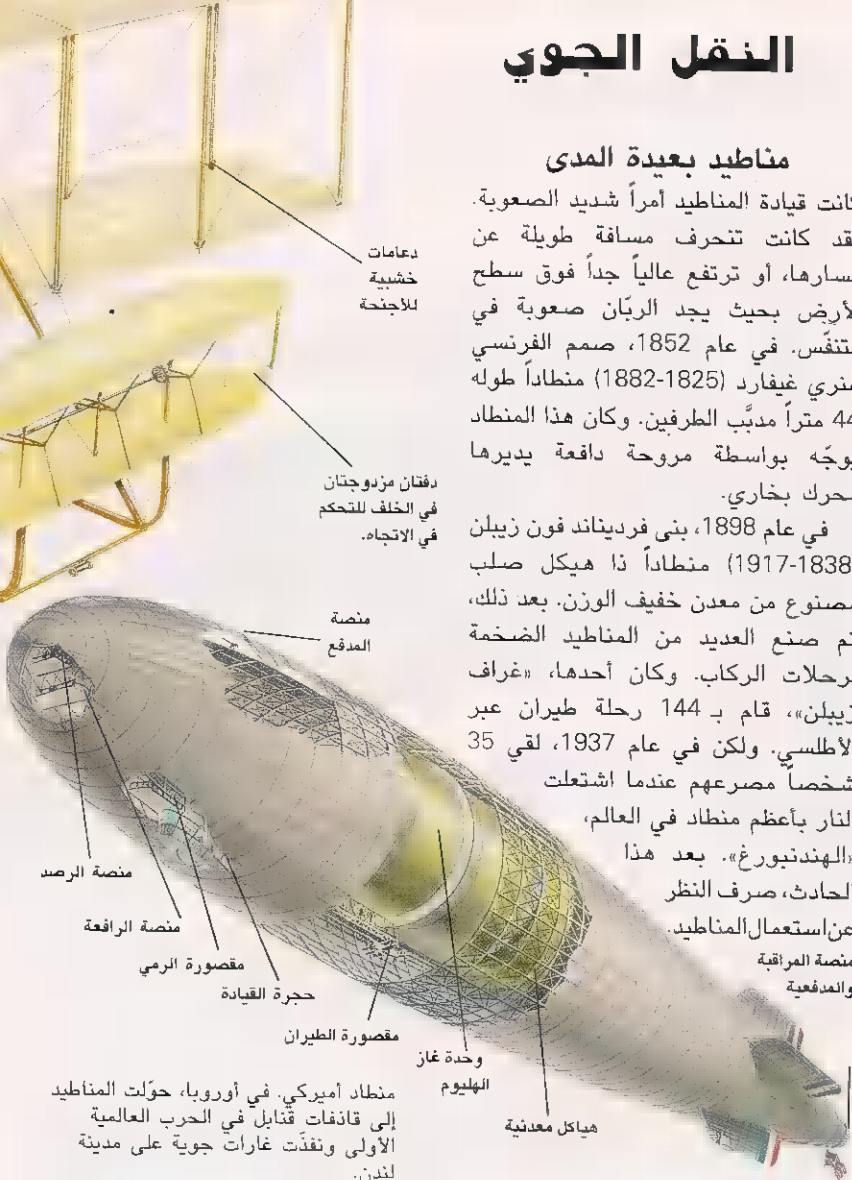 النقل الجوي
مناطيد بعيدة المدى
كانت قيادة المناطيد أمراً شديد الصعوبة.
قد كانت تنحرف مسافة طويلة عن
مسارها، أو ترتفع عالياً جداً فوق سطح
لأرض بحيث يجد الربّان صعوبة في
لتنفّس. في عام 1852، صمم الفرنسي
هنري غيفارد (1825-1882) منطاداً طوله
44 متراً مدبَّب الطرفين. وكان هذا المنطاد
يوجّه بواسطة مروحة دافعة يديرها
محرك بخاري.
في عام 1898، بنى فرديناند فون زيبلن
1838-1917) منطاداً ذا هيكل صلب
مصنوع من معدن خفيف الوزن. بعد ذلك،
تم صنع العديد من المناطيد الضخمة
لرحلات الركاب. وكان أحدها، «غراف
زيبلن»، قام بـ 144 رحلة طيران عبر
لأطلسي. ولكن في عام 1937، لقي 35
شخصاً مصرعهم عندما اشتعلت
لنار بأعظم منطاد في العالم،
«الهندنبورغ». بعد هذا
لحادث، صرف النظر
عن استعمال المناطيد.
دعامات
خشبية
للأجنحة
دفتان مزدوجتان
في الخلف للتحكم
في الاتجاه.
منصة
المدفع
منصة المراقبة
والمدفعية
منصة الرصد
منصة الرافعة
مقصورة الرمي
حجرة القيادة
مقصورة الطيران
وحدة غاز
الهليوم
هياكل معدنية
منطاد أميركي. في أوروبا، حوّلت المناطيد
إلى قاذفات قنابل في الحرب العالمية
الأولى ونفذّت غارات جوية على مدينة
لندن.